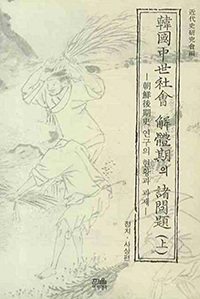 近代史研究會編
韓國中世社會 解體期의 諸問題(上)
―朝鮮後期史 연구의 현황과 과제―
정치·사상편
한울